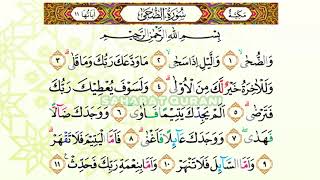 آيَاتُهَا ١١ سُورَةُ الضُّحَى مَكِّيَّة
بِسْمِ اللَّهِ الرَّحْمَٰنِ الرَّحِيمِ
وَالضُّحَىٰ ١ وَاللَّيْلِ إِذَا سَجَىٰ ٢ مَا وَدَّعَكَ رَبُّكَ وَمَا قَلَىٰ ٣
وَلَلْآخِرَةُ خَيْرٌ لَّكَ مِنَ الْأُولَىٰ ٤ وَلَسَوْفَ يُعْطِيكَ رَبُّكَ
SAHABAT QURANI
فَتَرْضَىٰ ٥ أَلَمْ يَجِدْكَ يَتِيمًا فَآوَىٰ ٦ وَوَجَدَكَ ضَالًّا
فَهَدَىٰ ٧ وَوَجَدَكَ عَائِلًا فَأَغْنَىٰ ٨ فَأَمَّا الْيَتِيمَ فَلَا تَقْهَرْ
٩ وَأَمَّا السَّائِلَ فَلَا تَنْهَرْ ١٠ وَأَمَّا بِنِعْمَةِ رَبِّكَ فَحَدِّثْ ١١